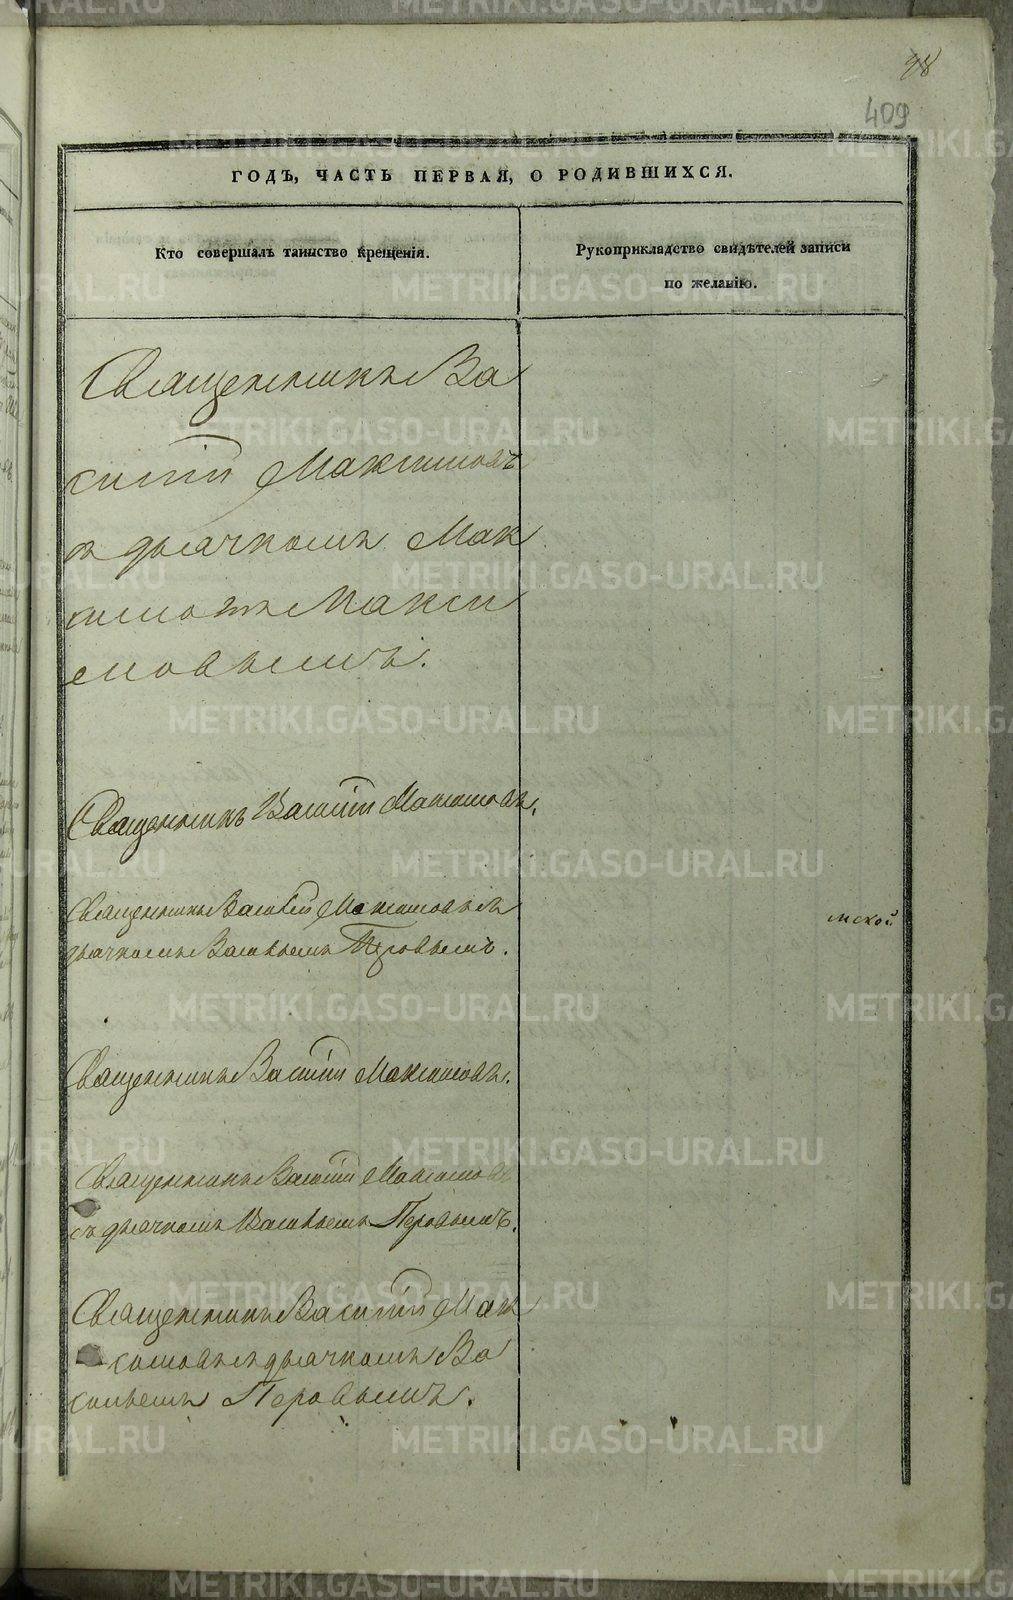 98
409
ГОДЪ, ЧАСТЬ ПЕРВАЯ, О РОДИВШИХСЯ.
Кто совершалъ таинство крещенія.
Рукоприкладство свидѣтелей записи
по желанію.
Священникъ Ва
силій Максимовъ
съ дьячкомъ Мак
симомъ Макси
мовымъ.
Священникъ Василій Максимовъ.
Священникъ Василій Максимовъ съ
дьячкомъ Васильемъ
мской
Священникъ Василій Максимовъ.
Священникъ Василій Максимовъ
съ дьячкомъ Васильемъ Перовымъ.
Священникъ Василій Мак
симовъ съ дьячкомъ Ва
сильемъ Перовымъ.
METRIKI.GASO-URAL.RU